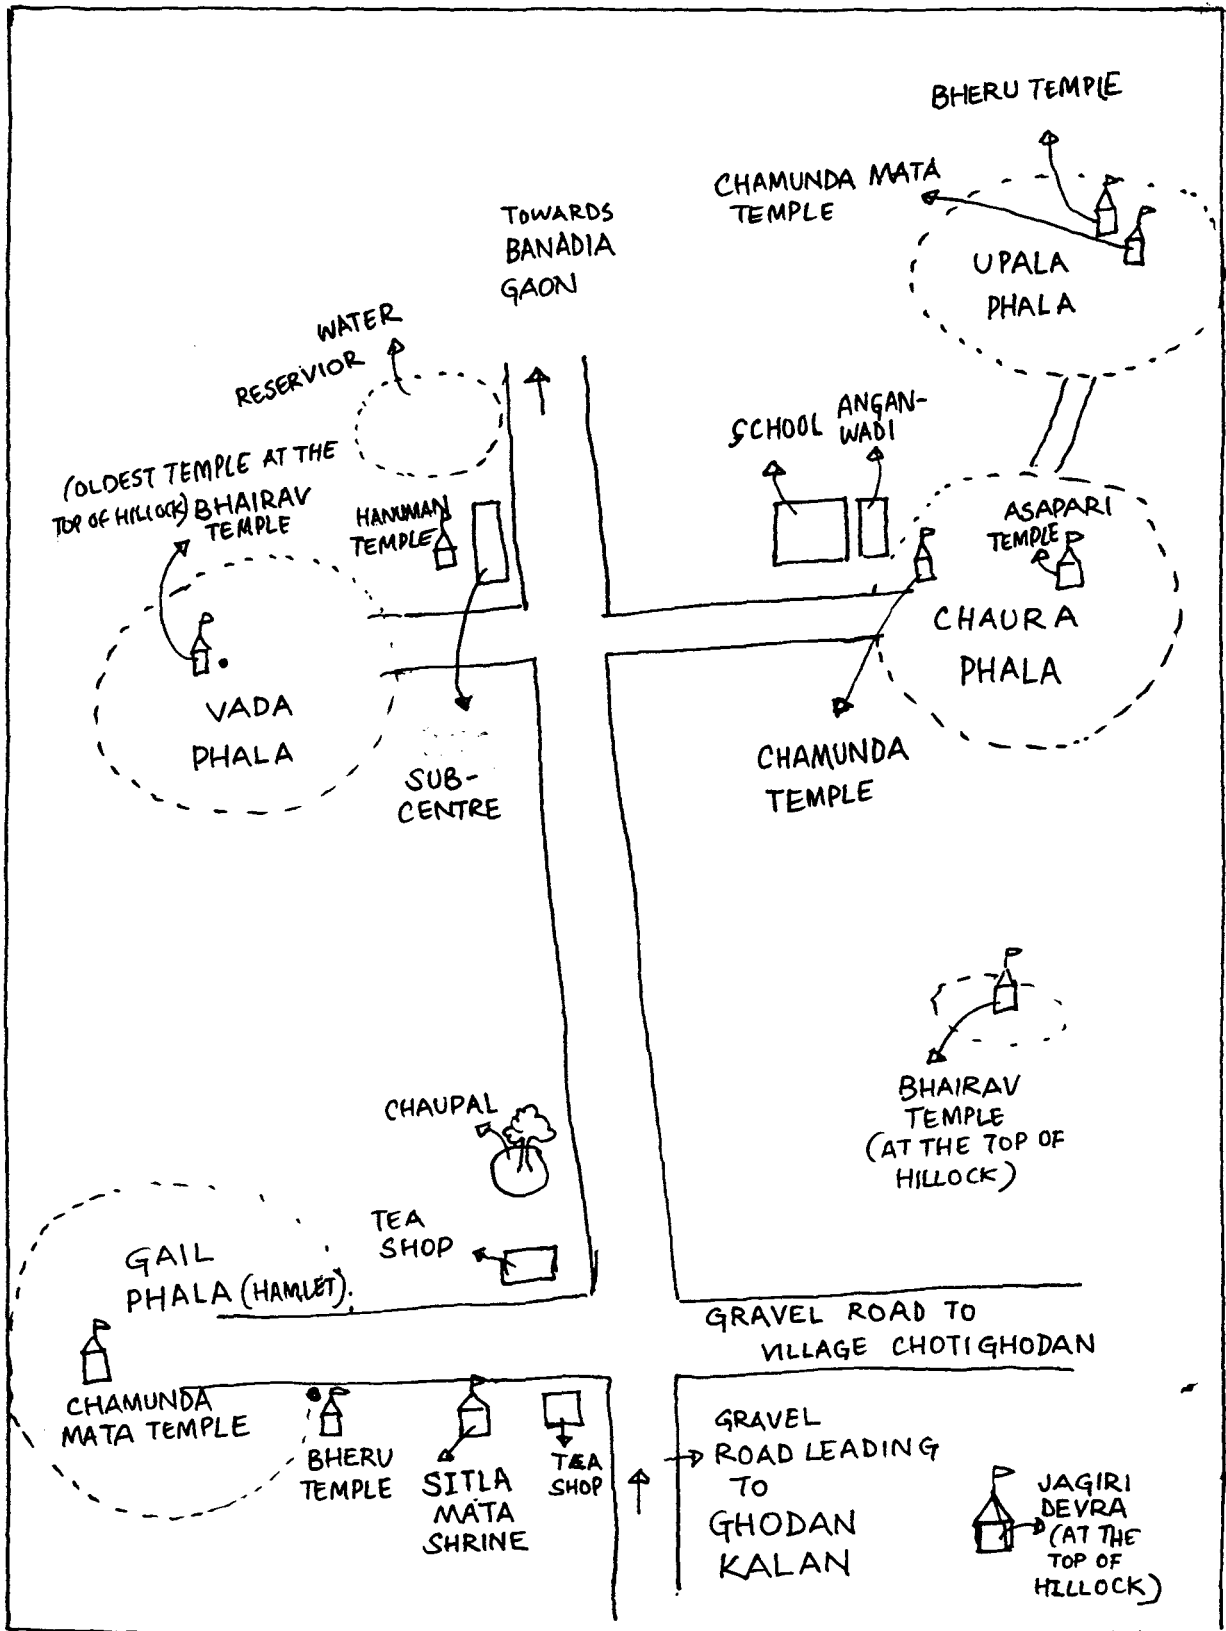 BHERU TEMPLE
CHAMUNDA MATA
TEMPLE
UPALA
PHALA
TOWARDS
BANADIA
GAON
WATER
RESERVIOR
SCHOOL
ANGAN-
WADI
(OLDEST TEMPLE AT THE
TOP OF HILLOCK) BHAIRAV
TEMPLE
HANUMAN
TEMPLE
ASAPARI
TEMPLE
CHAURA
PHALA
VADA
PHALA
SUB-
CENTRE
CHAMUNDA
TEMPLE
BHAIRAV
TEMPLE
(AT THE TOP OF
HILLOCK)
CHAUPAL
TEA
SHOP
GAIL
PHALA (HAMLET).
GRAVEL ROAD TO
VILLAGE CHOTIGHODAN
CHAMUNDA
MATA TEMPLE
BHERU
TEMPLE
SITLA
MATA
SHRINE
TEA
SHOP
GRAVEL
ROAD LEADING
TO
GHODAN
KALAN
JAGIRI
DEVRA
(AT THE
TOP OF
HILLOCK)